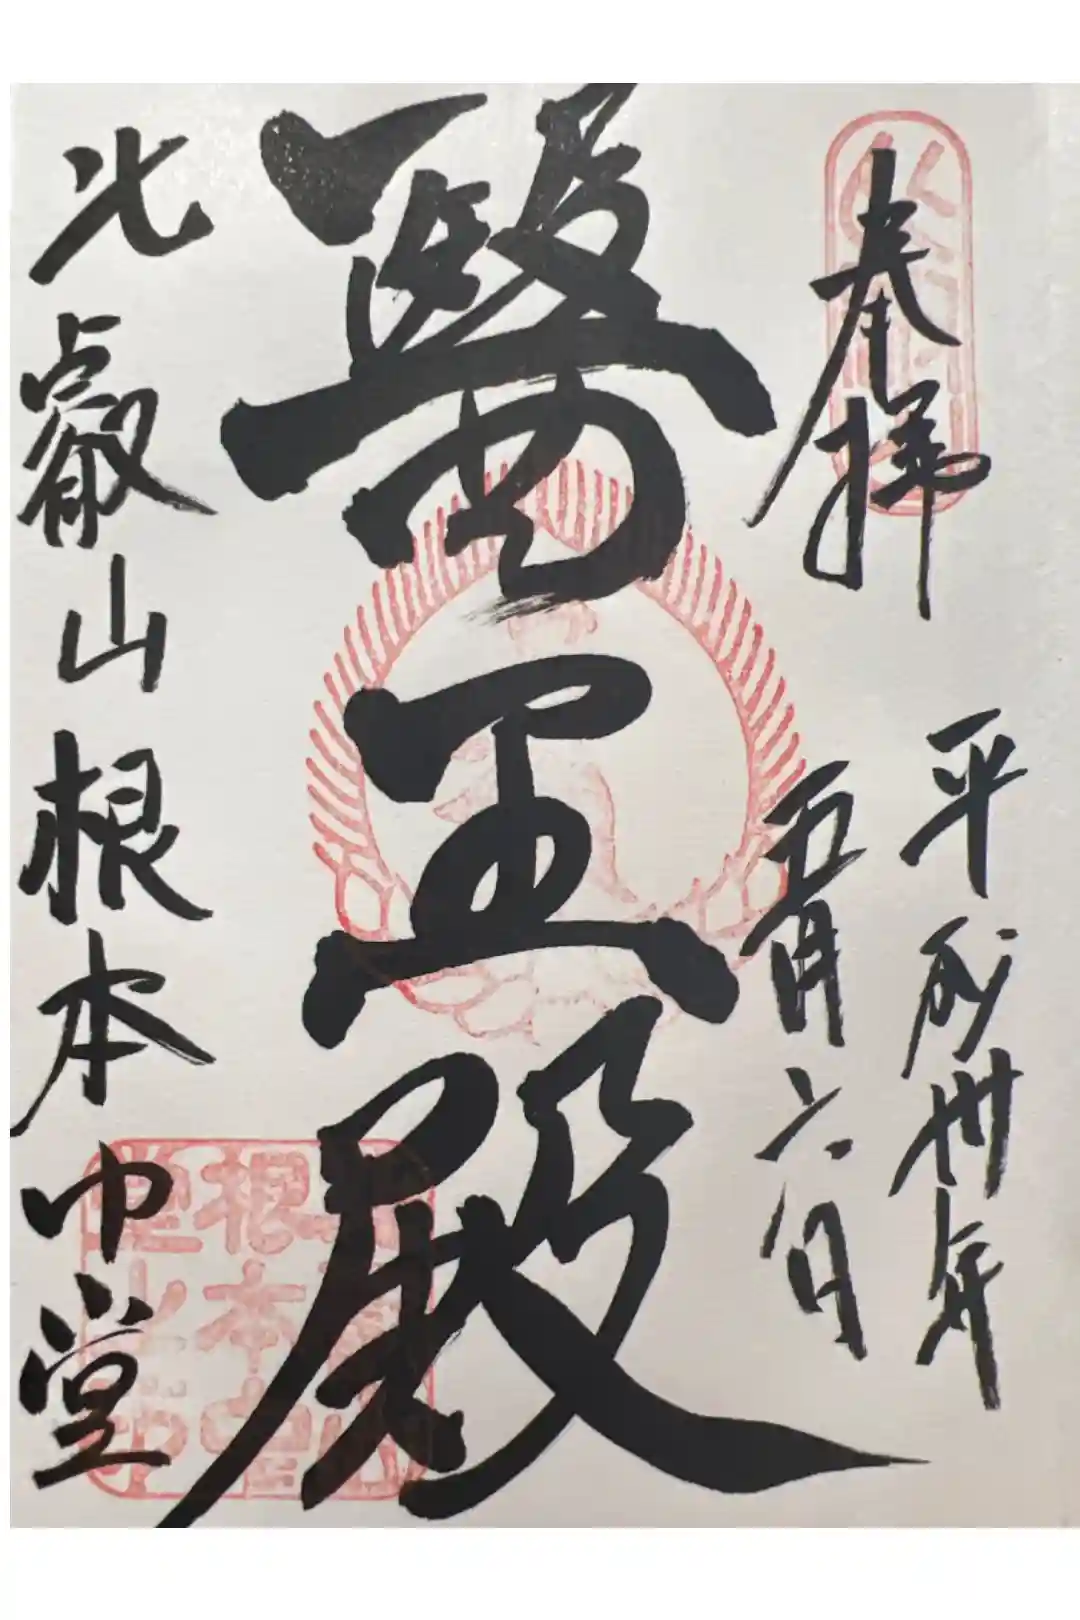 奉拝
平成卅年
五月六日
醫王殿
比叡山根本中堂
根本中
堂之印